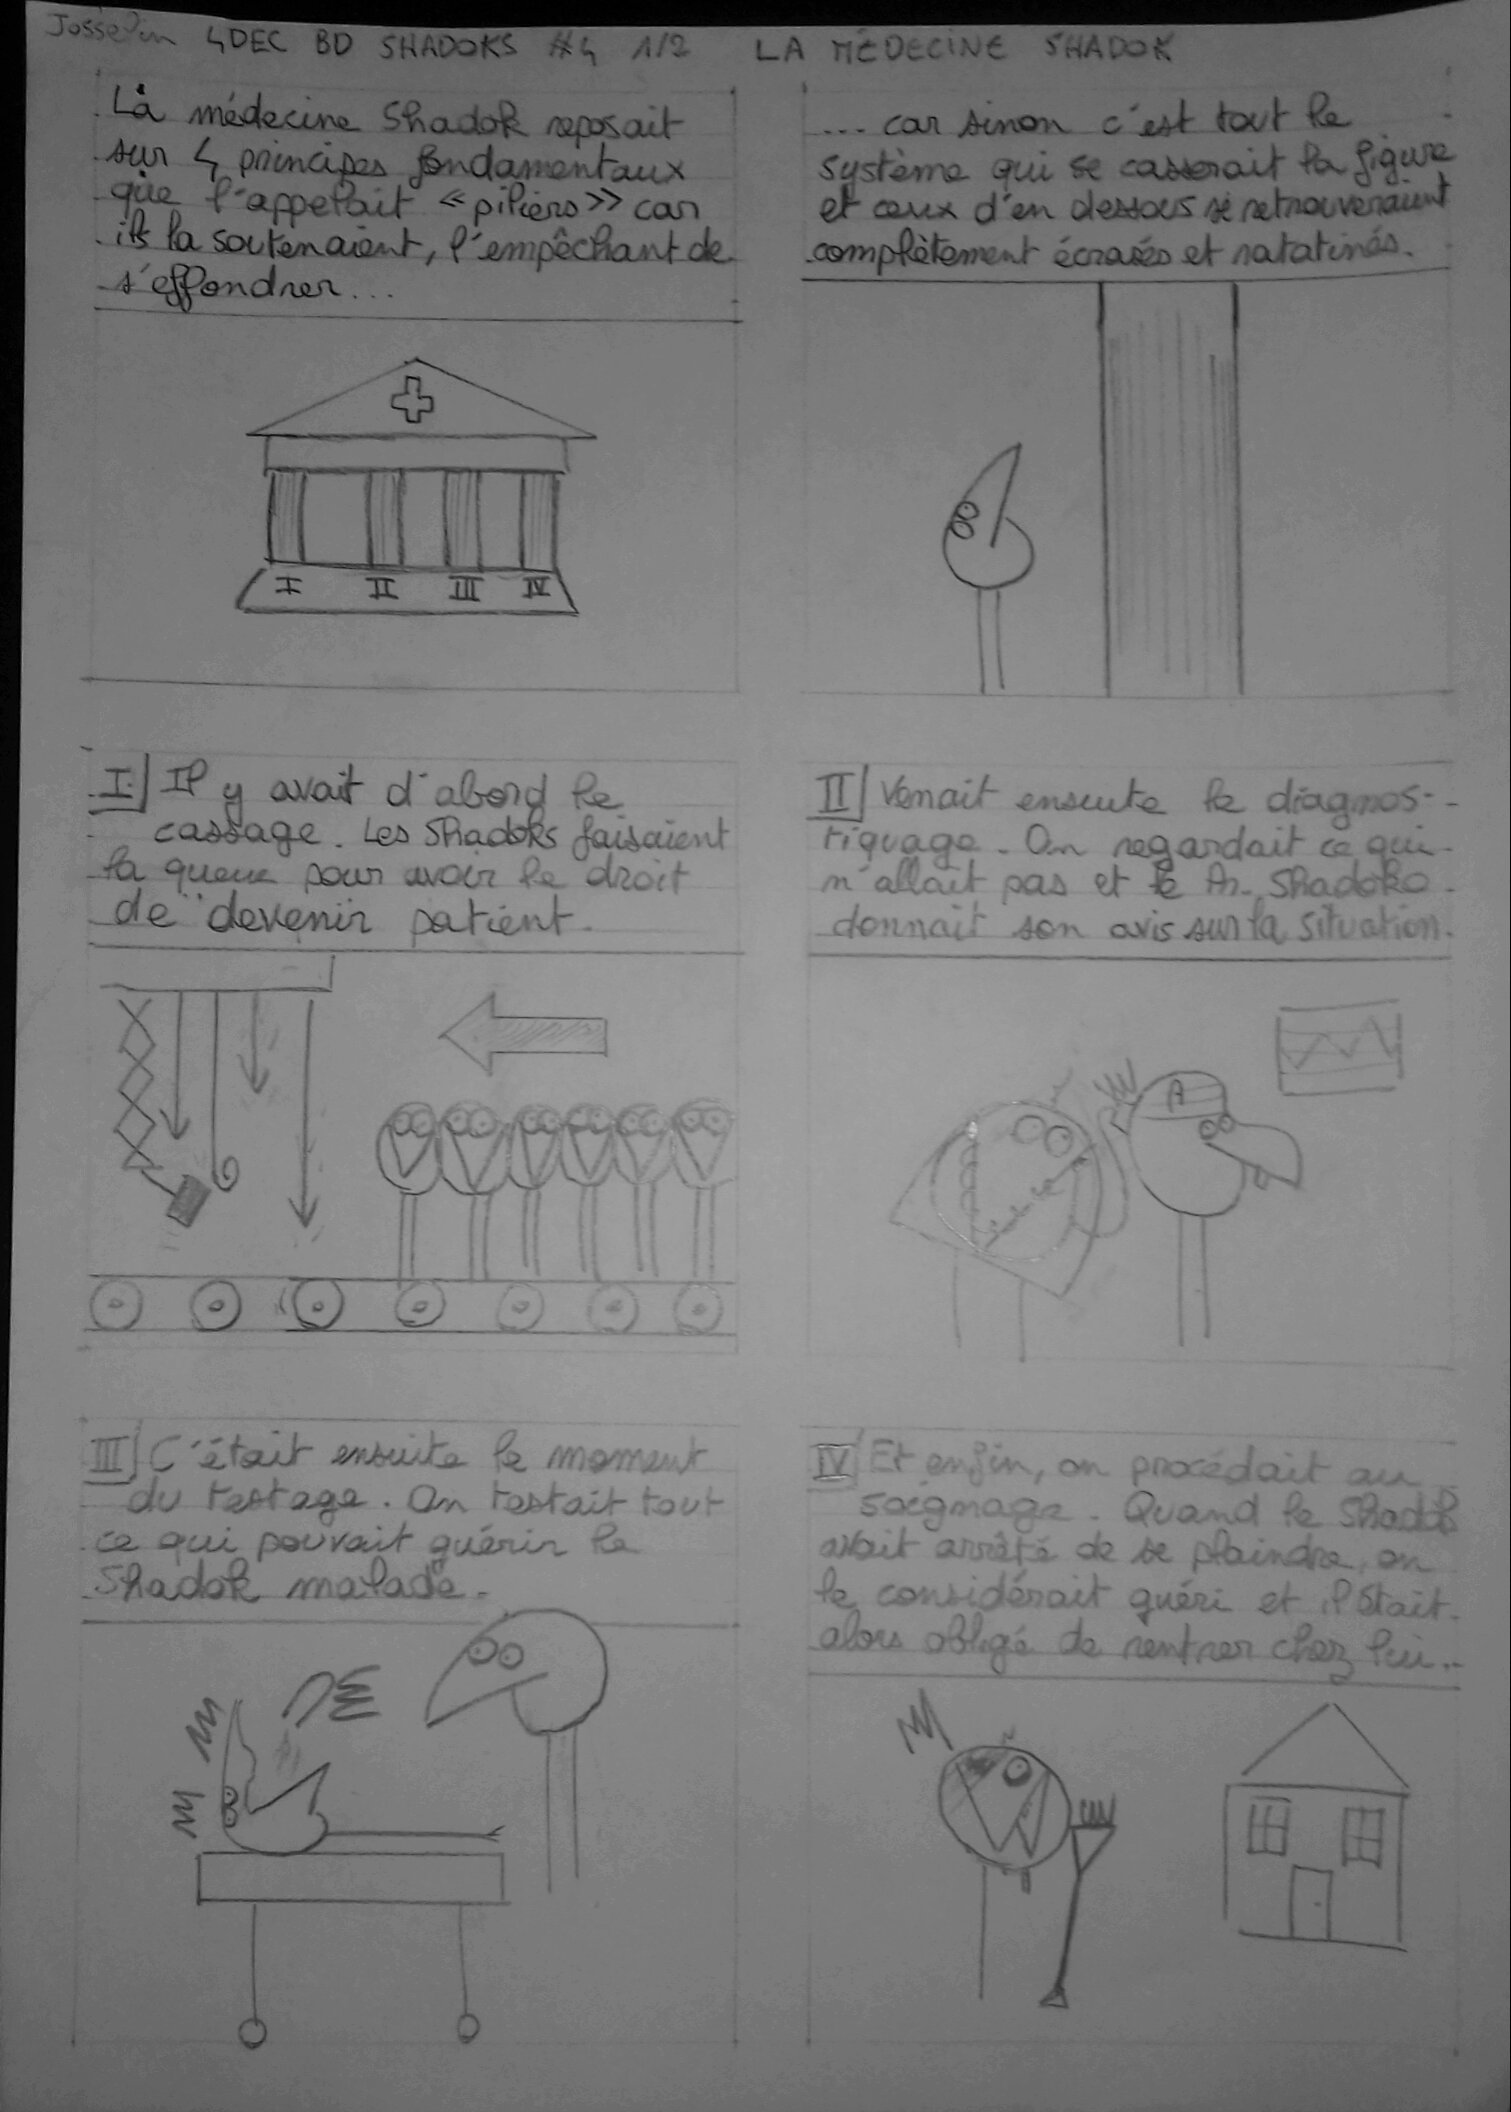 Josselin 4DEC BD SHADOKS #4 1/2 LA MÉDECINE SHADOK
La médecine Shadok reposait
sur 4 principes fondamentaux
que l'appelait « piliers » car
ils la soutenaient, l'empêchant de
s'effondrer...
... car sinon c'est tout le
système qui se casserait la figure
et ceux d'en dessous se retrouveraient
complètement écrasés et ratatinés.
I II III IV
I Il y avait d'abord le
cassage. Les Shadoks faisaient
la queue pour avoir le droit
de devenir patient.
II Venait ensuite le diagnos-
tiquage. On regardait ce qui
n'allait pas et le Pr. Shadoko
donnait son avis sur la situation.
A
III C'était ensuite le moment
du testage. On testait tout
ce qui pouvait guérir le
Shadok malade.
IV Et enfin, on procédait au
soignage. Quand le Shadok
avait arrêté de se plaindre, on
le considérait guéri et il était
alors obligé de rentrer chez lui...